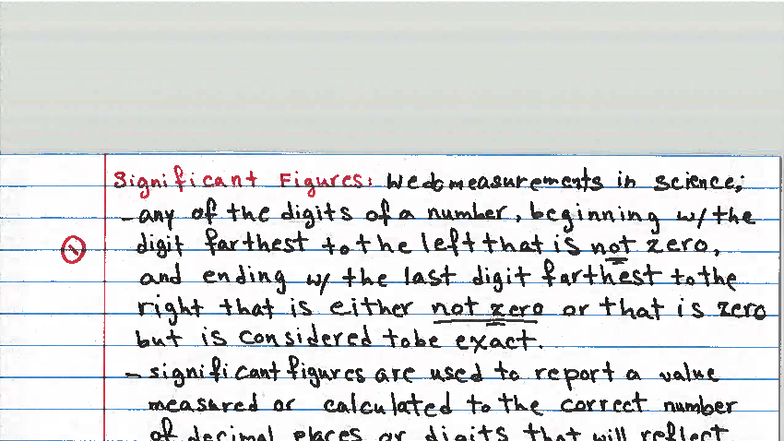 Significant Figures: We do measurements in science;
- any of the digits of a number, beginning w/ the
① digit farthest to the left that is not zero,
and ending w/ the last digit farthest to the
right that is either not zero or that is zero
but is considered to be exact.
- significant figures are used to report a value
measured or calculated to the correct number
of decimal places or digits that will reflect